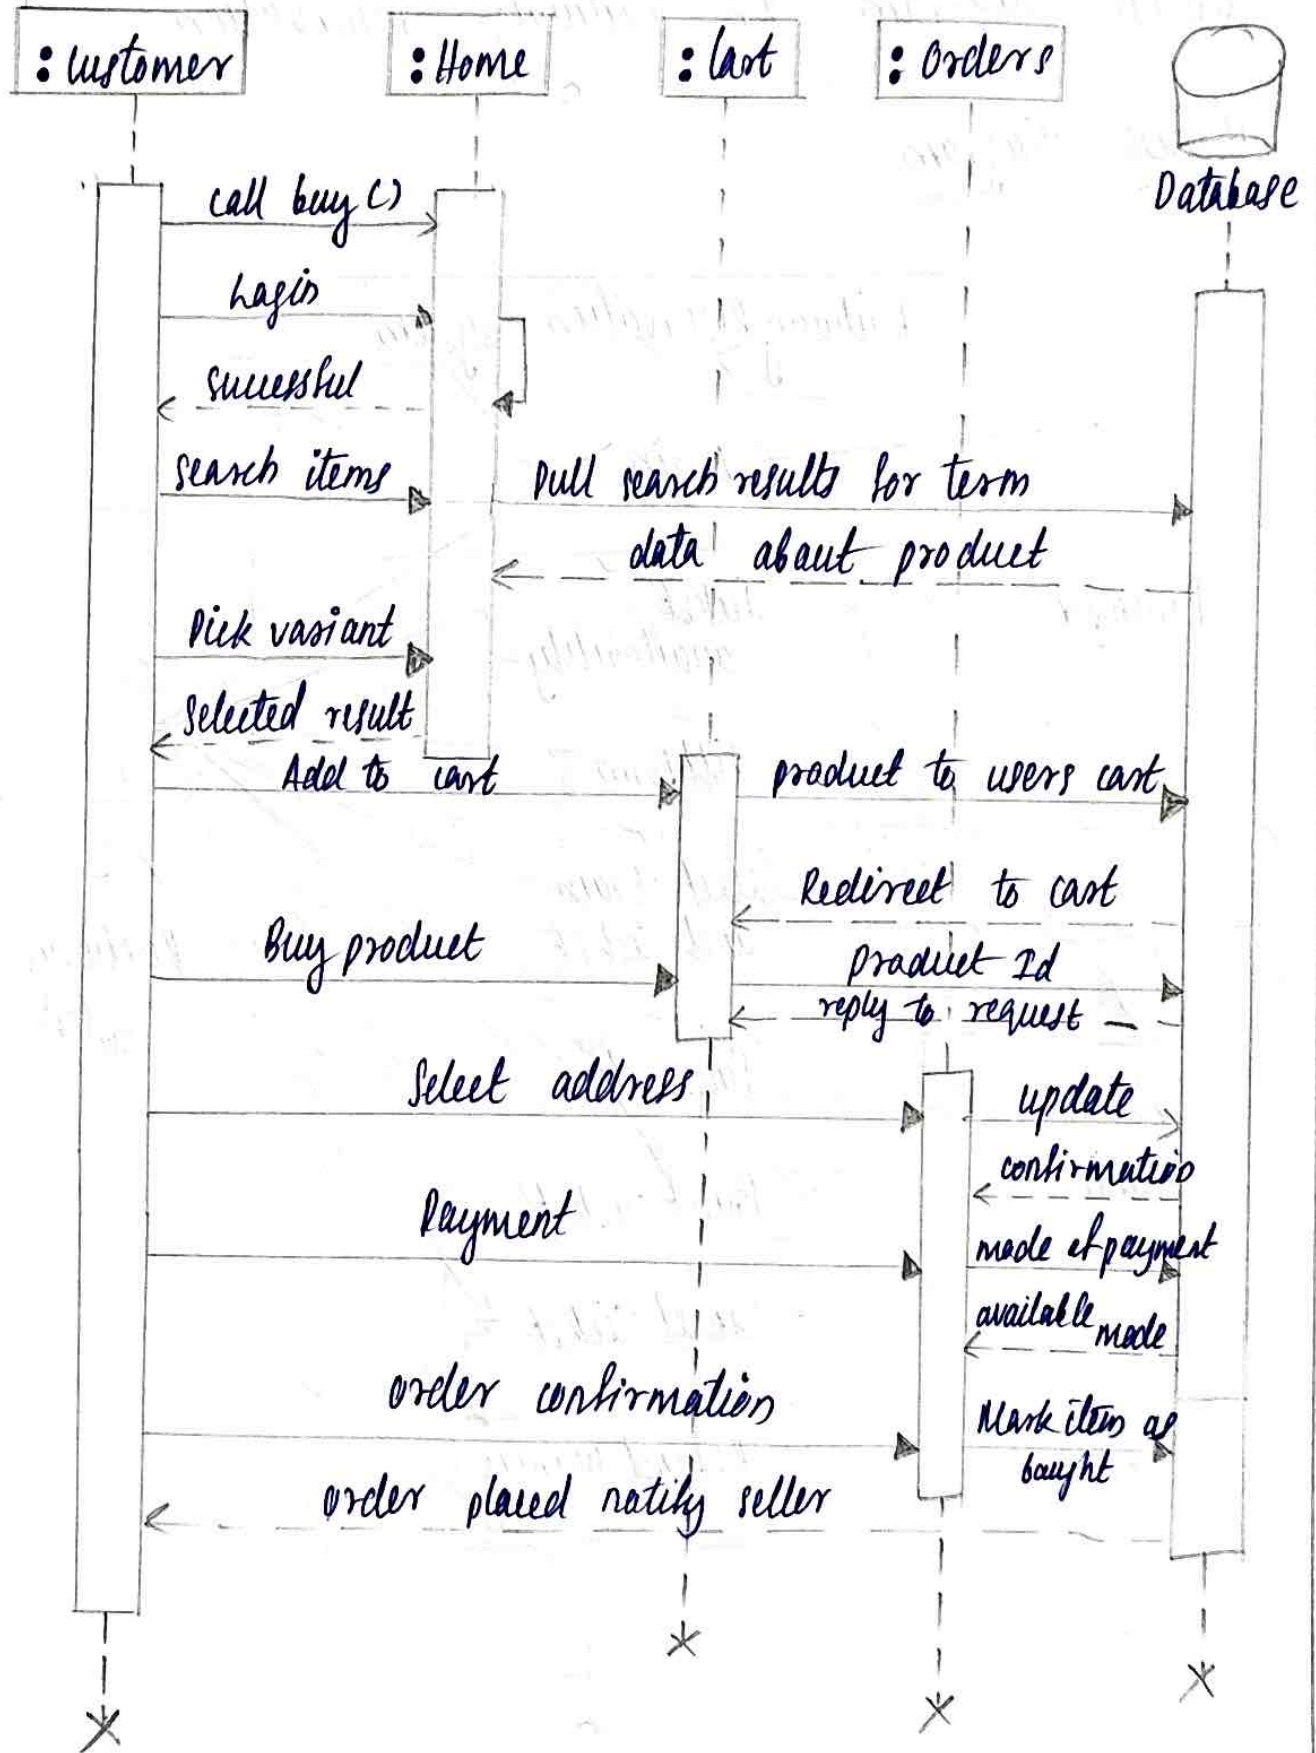 : Customer
: Home
: Cart
: Orders
Database
call buy()
Login
successful
search items
Pull search results for term
data about product
Pick variant
Selected result
Add to cart
product to users cart
Redirect to cart
Buy product
product Id
reply to request
Select address
update
confirmation
Payment
mode of payment
available mode
order confirmation
Mark item as
bought
order placed notify seller